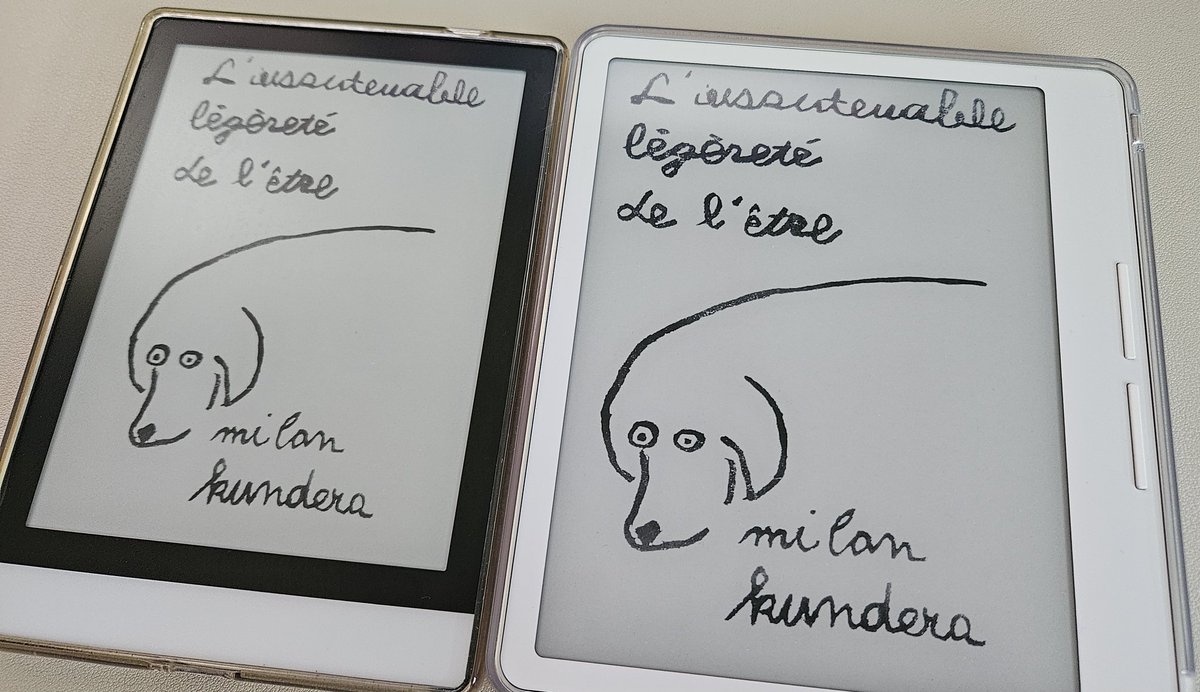 L'insoutenable
légèreté
de l'être
milan
kundera
L'insoutenable
légèreté
de l'être
milan
kundera